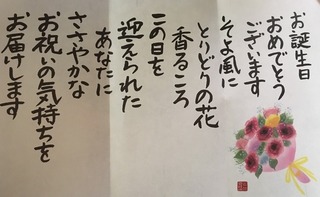 お誕生日
おめでとう
ございます
そよ風に
とりどりの花
香るころ
この日を
迎えられた
あなたに
ささやかな
お祝いの気持ちを
お届けします